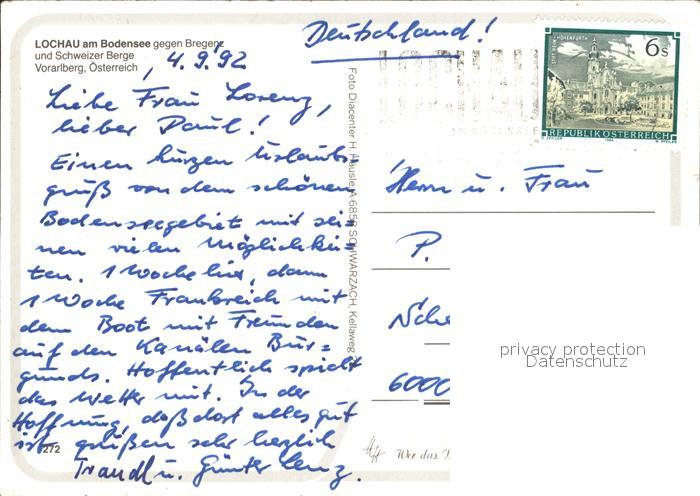 LOCHAU am Bodensee gegen Bregenz
und Schweizer Berge
Vorarlberg, Österreich
, 4.9.'92
Deutschland!
6s
STIFT REIN-HOHENFURTH
REPUBLIK ÖSTERREICH
LOCHAU
AM BODENSEE
Liebe Frau Lorenz,
lieber Paul!
Einen kurzen Urlaubs-
gruß von dem schönen
Bodenseegebiet mit sei=
nen vielen Möglichkei=
ten. 1 Woche hier, dann
1 Woche Frankreich mit
dem Boot mit Freunden
auf den Kanälen Bur=
gunds. Hoffentlich spielt
das Wetter mit. In der
Hoffnung, daß dort alles gut
ist grüßen sehr herzlich
Traudl u. Günter Lenz.
272
Foto Diacenter H. Häusle A-6858 SCHWARZACH, Kellaweg
Herrn u. Frau
P.
Sche
6000
Wer das
privacy protection
Datenschutz